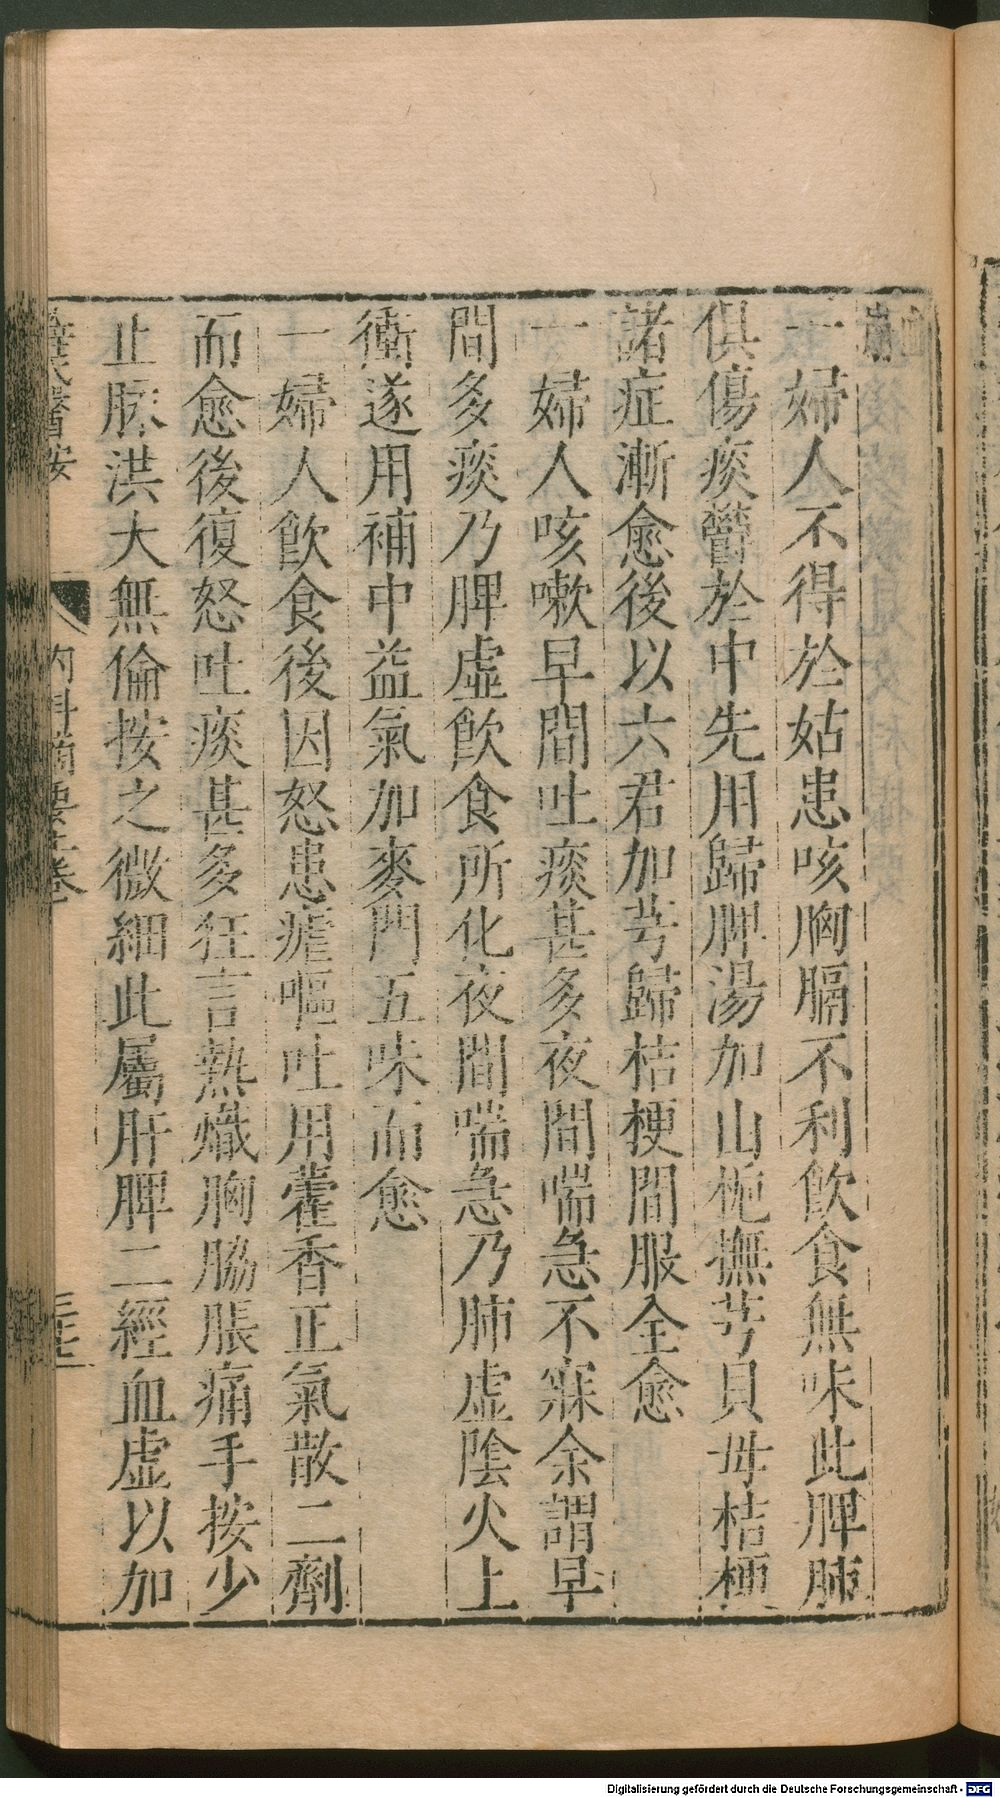 一婦人不得於姑患咳胸膈不利飲食無味此脾肺
俱傷痰鬱於中先用歸脾湯加山梔撫芎貝母桔梗
諸症漸愈後以六君加芎歸桔梗間服全愈
一婦人咳嗽早間吐痰甚多夜間喘急不寐余謂早
間多痰乃脾虛飲食所化夜間喘急乃肺虛陰火上
衝遂用補中益氣加麥門五味而愈
一婦人飲食後因怒患瘧嘔吐用藿香正氣散二劑
而愈後復怒吐痰甚多狂言熱熾胸脇脹痛手按少
止脉洪大無倫按之微細此屬肝脾二經血虛以加
薛氏醫按
內科摘要上卷
Digitalisierung gefördert durch die Deutsche Forschungsgemeinschaft - DFG